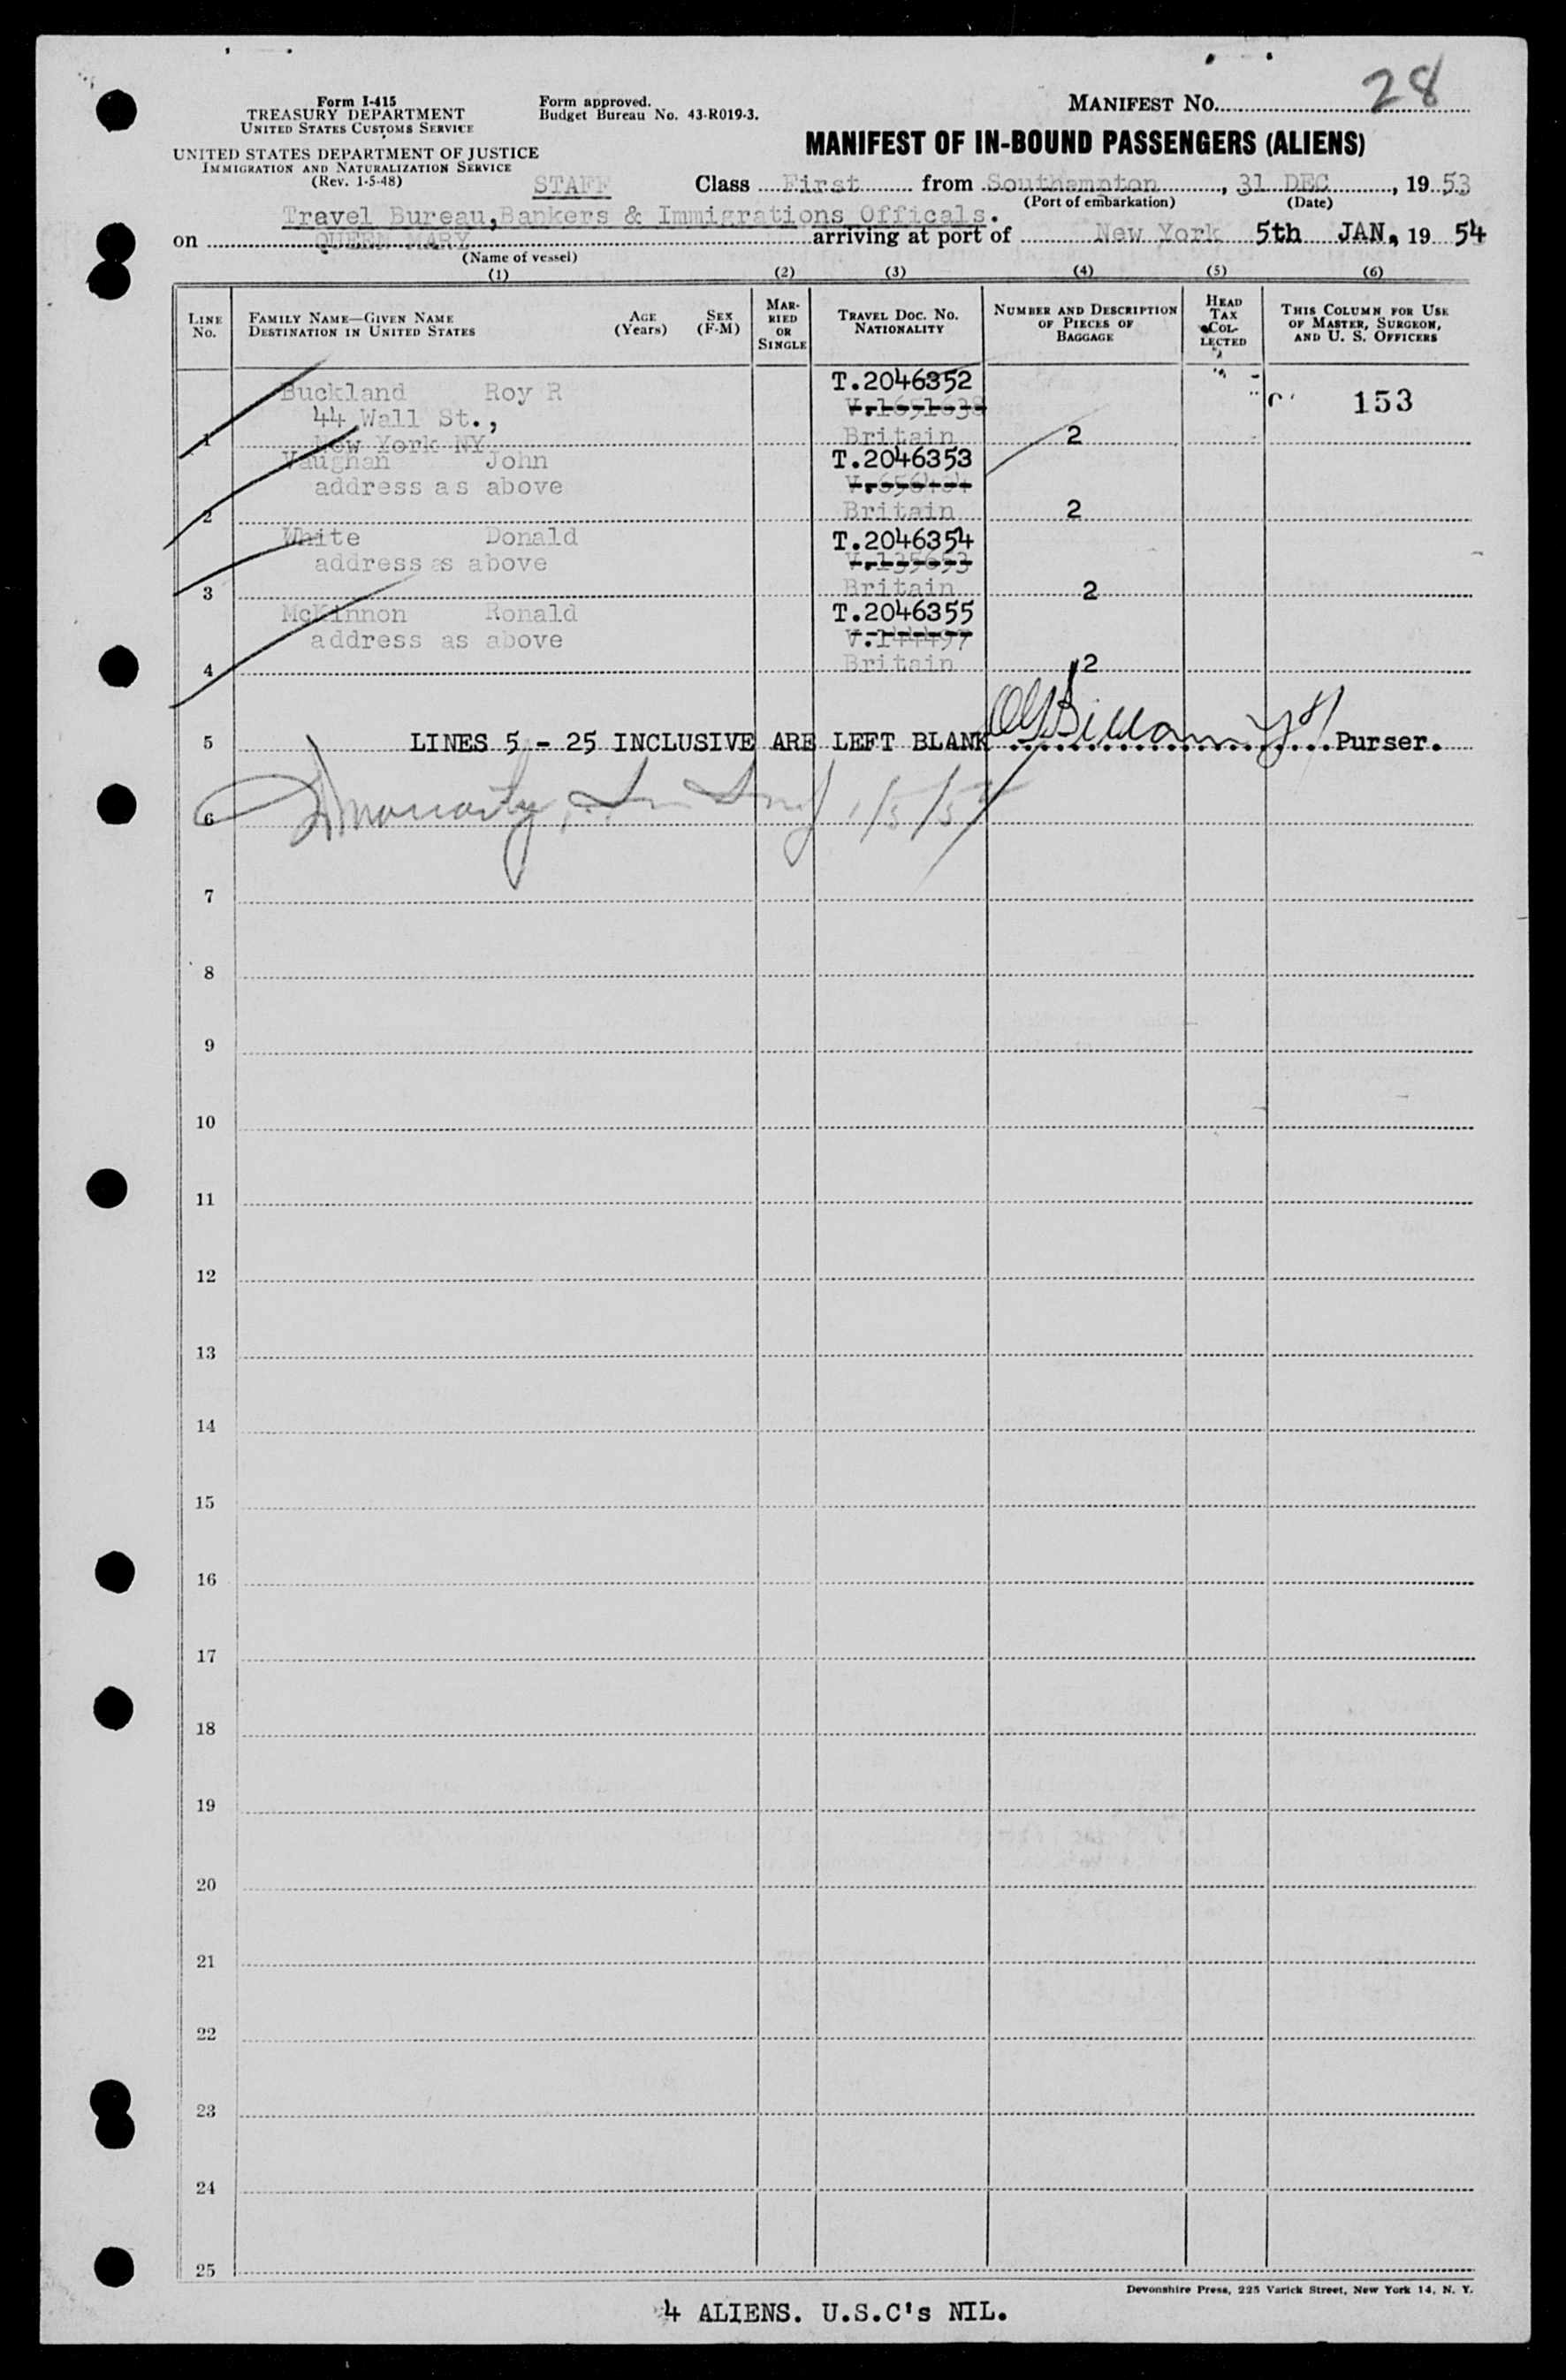 28
Form I-415
TREASURY DEPARTMENT
UNITED STATES CUSTOMS SERVICE
Form approved.
Budget Bureau No. 43-R019-3.
MANIFEST No.
UNITED STATES DEPARTMENT OF JUSTICE
IMMIGRATION AND NATURALIZATION SERVICE
(Rev. 1-5-48)
MANIFEST OF IN-BOUND PASSENGERS (ALIENS)
STAFF Class First from Southampton, 31 DEC, 19 53
(Port of embarkation) (Date)
Travel Bureau, Bankers & Immigrations Officals.
on QUEEN MARY arriving at port of New York 5th JAN, 19 54
(Name of vessel)
(1) (2) (3) (4) (5) (6)
LINE No.
FAMILY NAME—GIVEN NAME
DESTINATION IN UNITED STATES
AGE (Years)
SEX (F-M)
MARRIED OR SINGLE
TRAVEL DOC. NO. NATIONALITY
NUMBER AND DESCRIPTION OF PIECES OF BAGGAGE
HEAD TAX COLLECTED
THIS COLUMN FOR USE OF MASTER, SURGEON, AND U. S. OFFICERS
Buckland Roy R T.2046352
44 Wall St., V.1651638 153
1 New York NY Britain 2
Vaughan John T.2046353
address as above
2 Britain 2
White Donald T.2046354
address as above V.135653
3 Britain 2
McKinnon Ronald T.2046355
address as above V.144497
4 Britain 2
5 LINES 5 - 25 INCLUSIVE ARE LEFT BLANK Purser.
6 1/5/54
7
8
9
10
11
12
13
14
15
16
17
18
19
20
21
22
23
24
25
Devonshire Press, 225 Varick Street, New York 14, N. Y.
4 ALIENS. U.S.C's NIL.